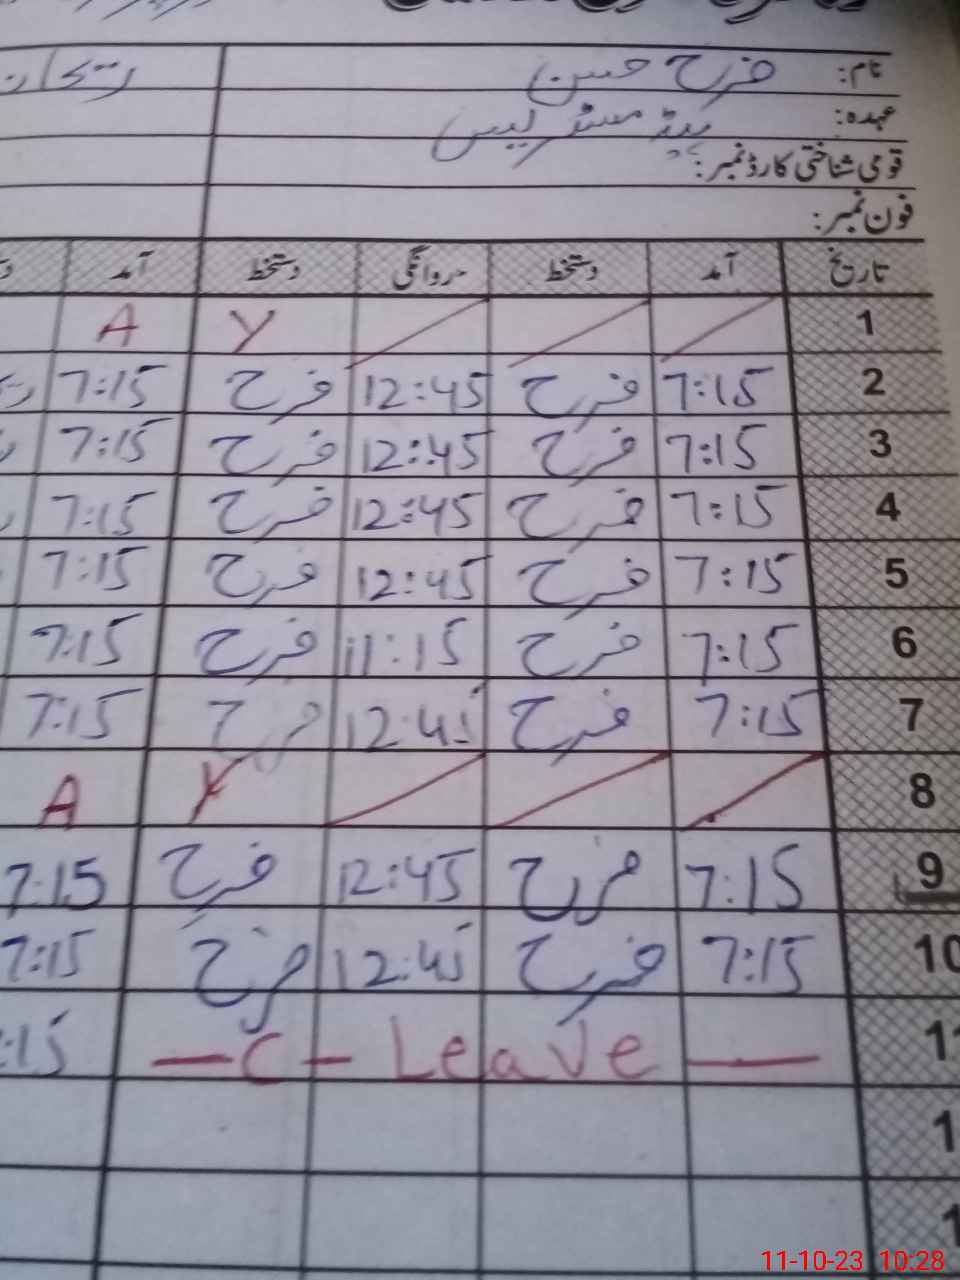 نام: فرح حسن ریحان
عہدہ: ہیڈ مسٹریس
قومی شناختی کارڈ نمبر:
فون نمبر:
تاریخ آمد دستخط روانگی دستخط آمد
1 Y A
2 7:15 فرح 12:45 فرح 7:15
3 7:15 فرح 12:45 فرح 7:15
4 7:15 فرح 12:45 فرح 7:15
5 7:15 فرح 12:45 فرح 7:15
6 7:15 فرح 11:15 فرح 7:15
7 7:15 فرح 12:45 فرح 7:15
8 Y A
9 7:15 فرح 12:45 فرح 7:15
10 7:15 فرح 12:45 فرح 7:15
11 — C - Leave — :15
1
1
11-10-23 10:28